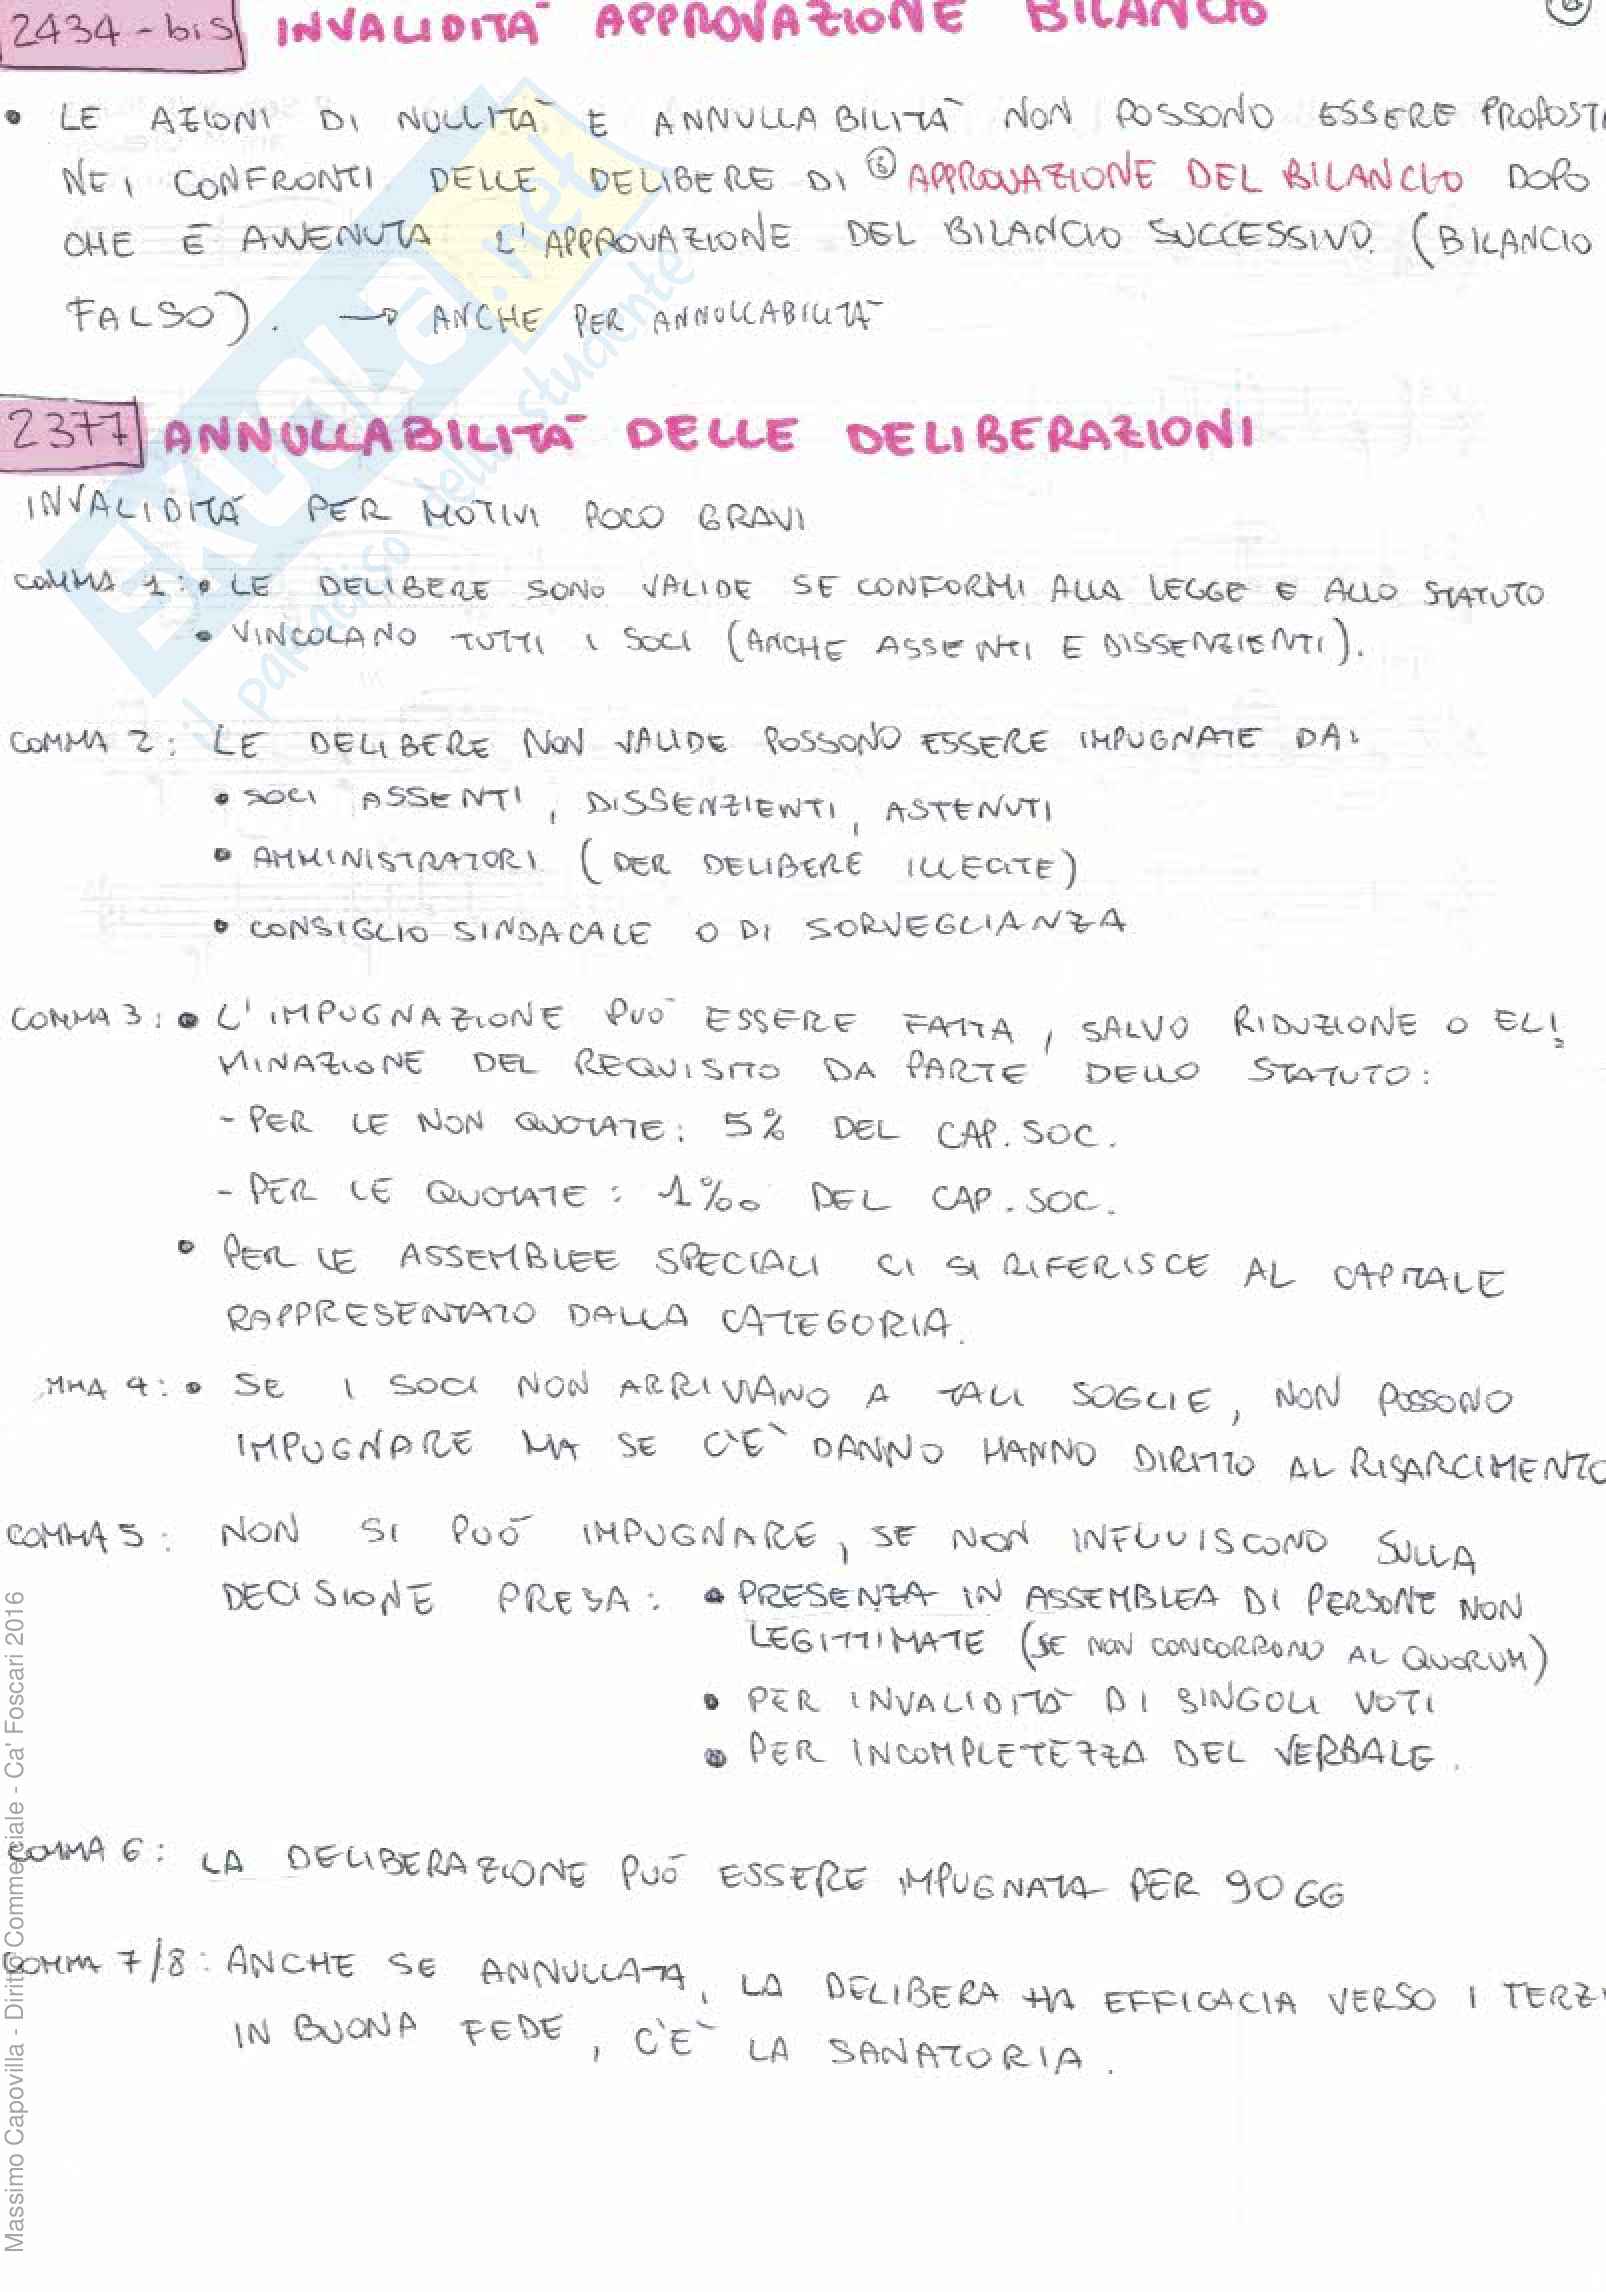 2434-bis INVALIDITÀ APPROVAZIONE BILANCIO
• LE AZIONI DI NULLITÀ E ANNULLABILITÀ NON POSSONO ESSERE PROPOSTE
NEI CONFRONTI DELLE DELIBERE DI APPROVAZIONE DEL BILANCIO DOPO
CHE È AVVENUTA L'APPROVAZIONE DEL BILANCIO SUCCESSIVO. (BILANCIO
FALSO). → ANCHE PER ANNULLABILITÀ
2377 ANNULLABILITÀ DELLE DELIBERAZIONI
INVALIDITÀ PER MOTIVI POCO GRAVI
COMMA 1: • LE DELIBERE SONO VALIDE SE CONFORMI ALLA LEGGE E ALLO STATUTO
• VINCOLANO TUTTI I SOCI (ANCHE ASSENTI E DISSENZIENTI).
COMMA 2: LE DELIBERE NON VALIDE POSSONO ESSERE IMPUGNATE DA:
• SOCI ASSENTI, DISSENZIENTI, ASTENUTI
• AMMINISTRATORI (PER DELIBERE ILLECITE)
• CONSIGLIO SINDACALE O DI SORVEGLIANZA
COMMA 3: • L'IMPUGNAZIONE PUÒ ESSERE FATTA, SALVO RIDUZIONE O ELI
MINAZIONE DEL REQUISITO DA PARTE DELLO STATUTO:
- PER LE NON QUOTATE: 5% DEL CAP. SOC.
- PER LE QUOTATE: 1‰ DEL CAP. SOC.
• PER LE ASSEMBLEE SPECIALI CI SI RIFERISCE AL CAPITALE
RAPPRESENTATO DALLA CATEGORIA.
MMA 4: • SE I SOCI NON ARRIVANO A TALI SOGLIE, NON POSSONO
IMPUGNARE MA SE C'È DANNO HANNO DIRITTO AL RISARCIMENTO
COMMA 5: NON SI PUÒ IMPUGNARE, SE NON INFLUISCONO SULLA
DECISIONE PRESA: • PRESENZA IN ASSEMBLEA DI PERSONE NON
LEGITTIMATE (SE NON CONCORRONO AL QUORUM)
• PER INVALIDITÀ DI SINGOLI VOTI
• PER INCOMPLETEZZA DEL VERBALE.
COMMA 6: LA DELIBERAZIONE PUÒ ESSERE IMPUGNATA PER 90 GG
COMMA 7/8: ANCHE SE ANNULLATA, LA DELIBERA HA EFFICACIA VERSO I TERZI
IN BUONA FEDE, C'È LA SANATORIA.
SKUOLA.net
il paradiso dello studente
Massimo Capovilla - Diritto Commerciale - Ca' Foscari 2016